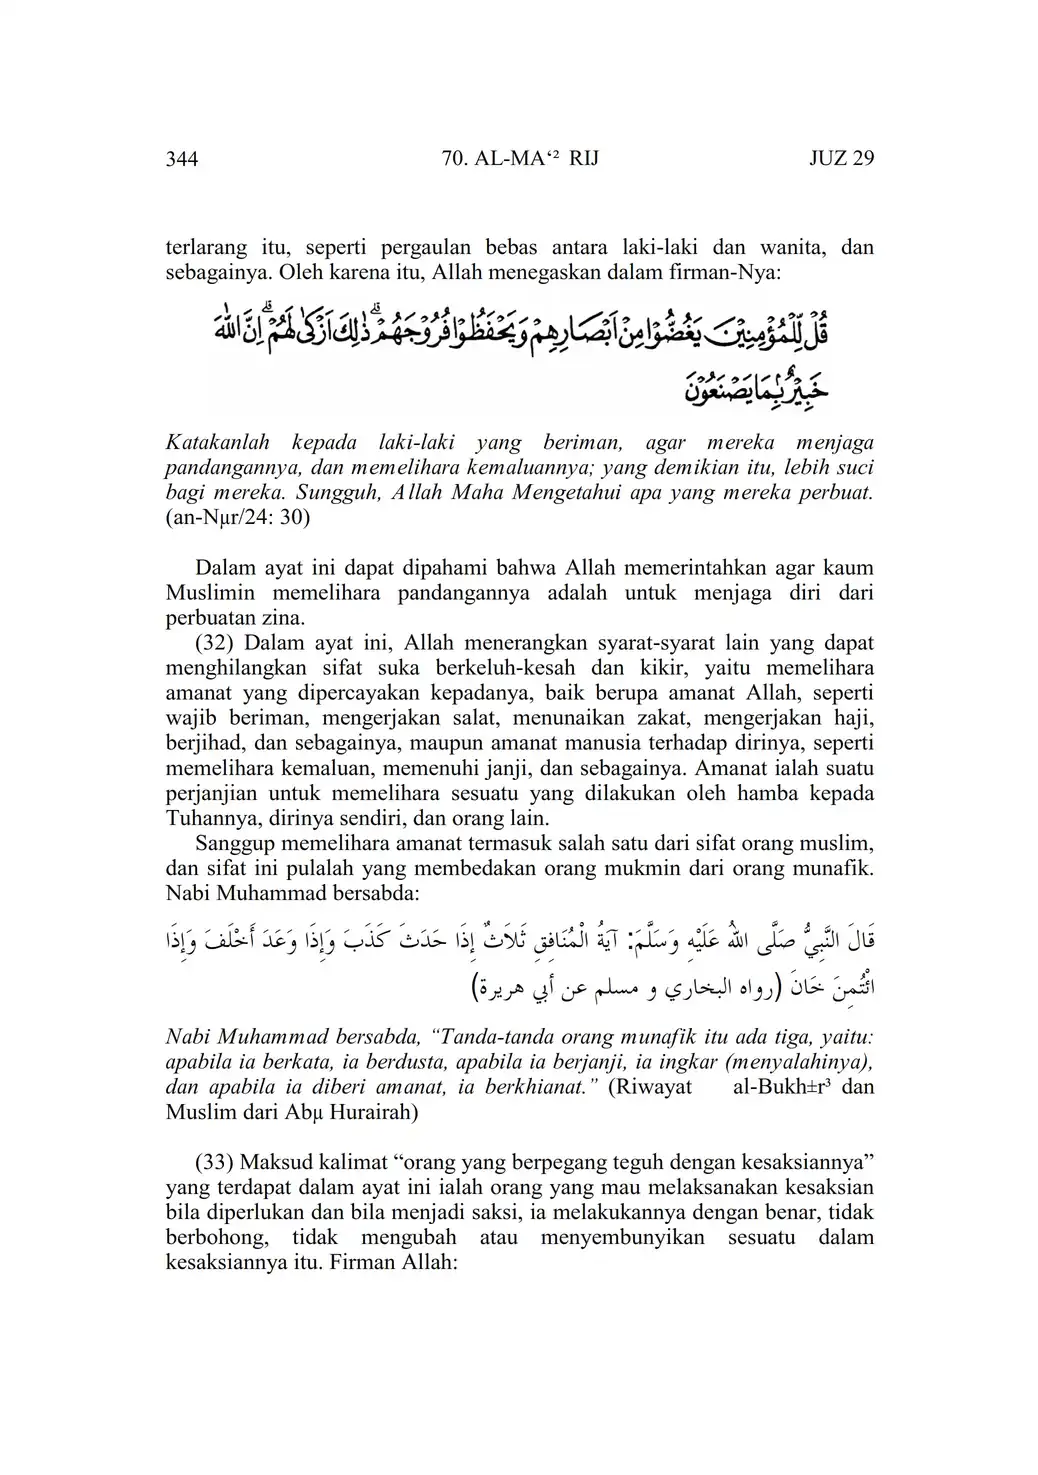 344 70. AL-MA‘² RIJ JUZ 29
terlarang itu, seperti pergaulan bebas antara laki-laki dan wanita, dan
sebagainya. Oleh karena itu, Allah menegaskan dalam firman-Nya:
قُلْ لِّلْمُؤْمِنِيْنَ يَغُضُّوْا مِنْ اَبْصَارِهِمْ وَيَحْفَظُوْا فُرُوْجَهُمْۗ ذٰلِكَ اَزْكٰى لَهُمْۗ اِنَّ اللّٰهَ
خَبِيْرٌۢ بِمَا يَصْنَعُوْنَ
Katakanlah kepada laki-laki yang beriman, agar mereka menjaga
pandangannya, dan memelihara kemaluannya; yang demikian itu, lebih suci
bagi mereka. Sungguh, Allah Maha Mengetahui apa yang mereka perbuat.
(an-Nµr/24: 30)
Dalam ayat ini dapat dipahami bahwa Allah memerintahkan agar kaum
Muslimin memelihara pandangannya adalah untuk menjaga diri dari
perbuatan zina.
(32) Dalam ayat ini, Allah menerangkan syarat-syarat lain yang dapat
menghilangkan sifat suka berkeluh-kesah dan kikir, yaitu memelihara
amanat yang dipercayakan kepadanya, baik berupa amanat Allah, seperti
wajib beriman, mengerjakan salat, menunaikan zakat, mengerjakan haji,
berjihad, dan sebagainya, maupun amanat manusia terhadap dirinya, seperti
memelihara kemaluan, memenuhi janji, dan sebagainya. Amanat ialah suatu
perjanjian untuk memelihara sesuatu yang dilakukan oleh hamba kepada
Tuhannya, dirinya sendiri, dan orang lain.
Sanggup memelihara amanat termasuk salah satu dari sifat orang muslim,
dan sifat ini pulalah yang membedakan orang mukmin dari orang munafik.
Nabi Muhammad bersabda:
قَالَ النَّبِيُّ صَلَّى اللهُ عَلَيْهِ وَسَلَّمَ: آيَةُ الْمُنَافِقِ ثَلَاثٌ إِذَا حَدَثَ كَذَبَ وَإِذَا وَعَدَ أَخْلَفَ وَإِذَا
ائْتُمِنَ خَانَ (رواه البخاري و مسلم عن أبي هريرة)
Nabi Muhammad bersabda, “Tanda-tanda orang munafik itu ada tiga, yaitu:
apabila ia berkata, ia berdusta, apabila ia berjanji, ia ingkar (menyalahinya),
dan apabila ia diberi amanat, ia berkhianat.” (Riwayat al-Bukh±r³ dan
Muslim dari Abµ Hurairah)
(33) Maksud kalimat “orang yang berpegang teguh dengan kesaksiannya”
yang terdapat dalam ayat ini ialah orang yang mau melaksanakan kesaksian
bila diperlukan dan bila menjadi saksi, ia melakukannya dengan benar, tidak
berbohong, tidak mengubah atau menyembunyikan sesuatu dalam
kesaksiannya itu. Firman Allah: